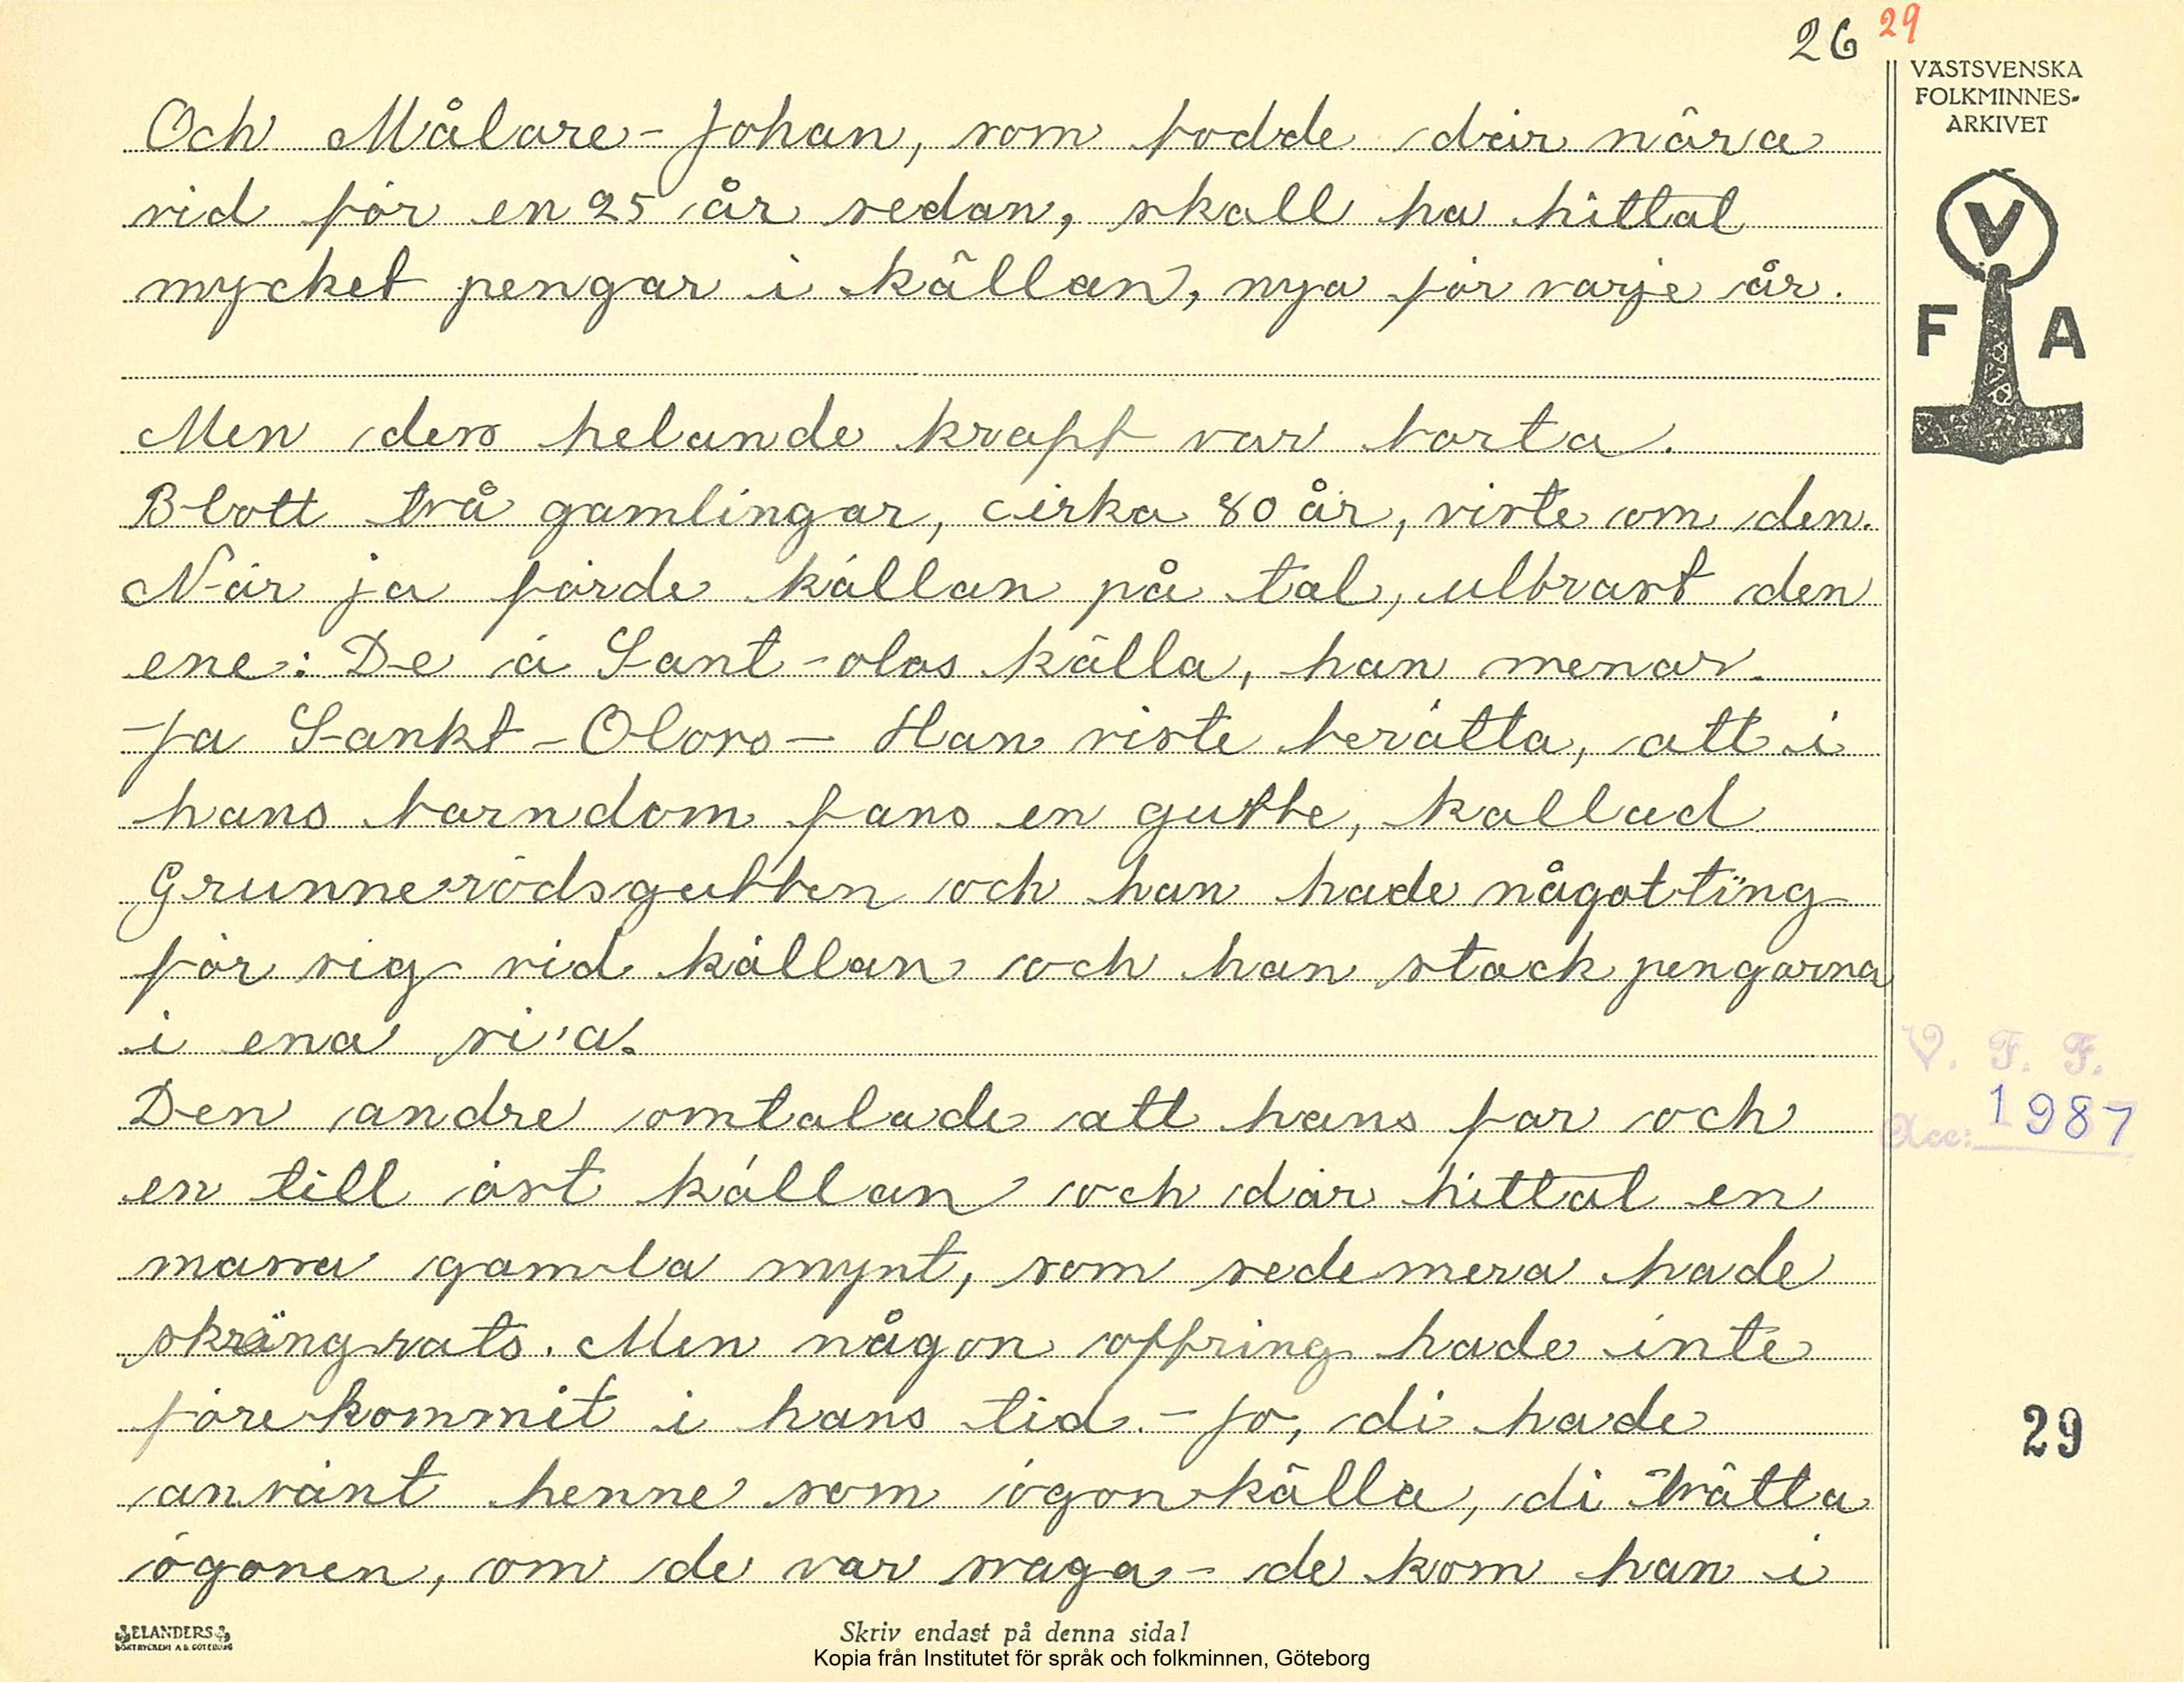 26 29
VÄSTSVENSKA
FOLKMINNES-
ARKIVET
V
F A
Och Målare-Johan, som bodde där nära
vid för en 25 år sedan, skall ha hittat
mycket pengar i källan, nya för varje år.
Men dens helande kraft var borta.
Blott två gamlingar, cirka 80 år, visste om den.
När ja förde källan på tal, utbrast den
ene: De ä Sant-olas källa, han menar.
Ja Sankt-Olovs- Han viste berätta, att i
hans barndom fans en gubbe, kallad
Grunnerödsgubben och han hade någotting
för sig vid källan och han stack pengarna
i ena si'a.
Den andre omtalade att hans far och
en till öst källan och där hittat en
massa gamla mynt, som sedemera hade
skrängrats. Men någon offring hade inte
förekommit i hans tid.- Jo, di hade
använt henne som ögonkälla, di tvätta
ögonen, om de var svaga- de kom han i
V. F. F.
Acc: 1987
29
ELANDERS
BOKTRYCKERI A.B. GÖTEBORG
Skriv endast på denna sida!
Kopia från Institutet för språk och folkminnen, Göteborg